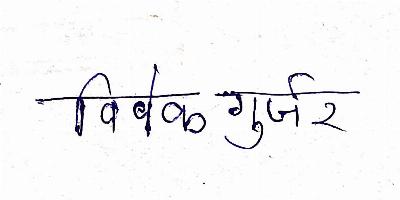 विवेक गुर्जर